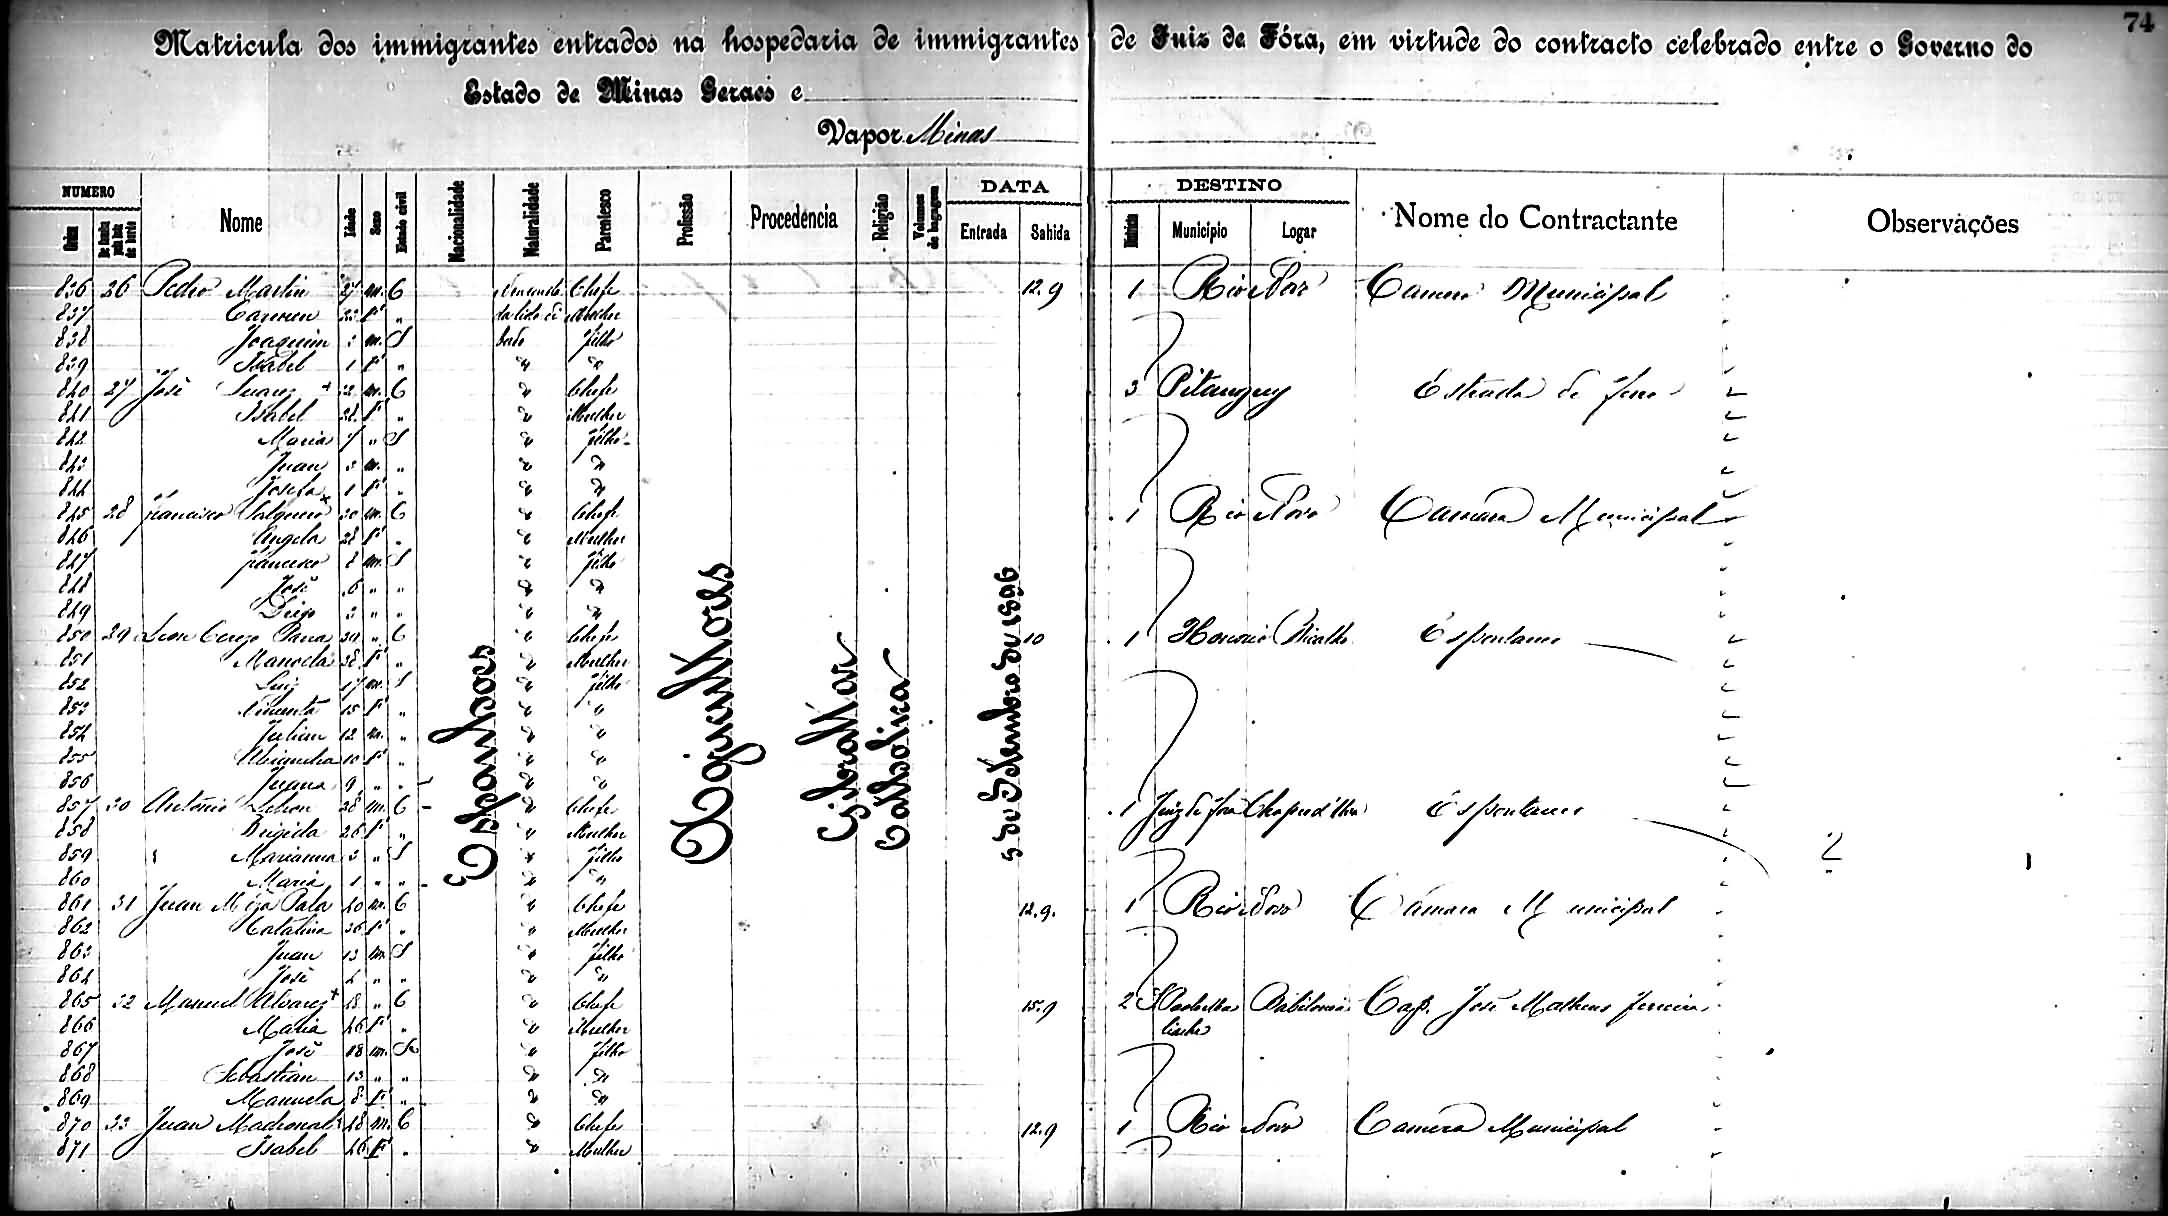 74
Matricula dos immigrantes entrados na hospedaria de immigrantes de Juiz de Fóra, em virtude do contracto celebrado entre o Governo do
Estado de Minas Geraes e
Vapor Minas
NUMERO DATA DESTINO
Ordem Nome Idade Sexo Estado civil Nacionalidade Naturalidade Parentesco Profissão Procedencia Religião Volumes de bagagem Entrada Sahida Districto Municipio Logar Nome do Contractante Observações
836 26 Pedro Martin 27 m. C Chefe 12.9 1 Rio Novo Camera Municipal
837 Carmen 22 F " Mulher
838 Joaquim 3 m. S Filho
839 Isabel 1 F " " "
840 27 José Suarez + 32 m. C " Chefe 3 Pitanguy Estrada de Ferro
841 Isabel 28 F " " Mulher
842 Maria 7 " S " Filho
843 Juan 3 m. " " "
844 Josefa 1 F " " "
845 28 Francisco Salguero + 30 m. C " Chefe 1 Rio Novo Camara Municipal
846 Angela 28 F " " Mulher
847 Francisco 8 m. S " Filho
848 José 6 " " " "
849 Diego 3 " " " "
850 29 Cerezo 39 " C " Chefe 10 1 Honorio Bicalho Espontaneo
851 Manoela 38 F " " Mulher
852 Luiz 17 m. S " Filho
853 15 F " " "
854 Julian 12 m. " " "
855 10 F " " "
856 Juana 9 " " " "
857 30 Antonio 28 m. C " Chefe 1 Juiz de Fora Chapeu d'Uvas Espontaneo
858 Brigida 26 F " " Mulher
859 Marianna 3 " S " Filho 2
860 Maria 1 " " " "
861 31 Juan 40 m. C " Chefe 12.9. 1 Rio Novo Camara Municipal
862 Catalina 36 F " " Mulher
863 Juan 13 m S " Filho
864 José 4 " " " "
865 32 Manuel Alvarez + 48 " C " Chefe 15.9 2 Babilonia Cap. José Matheus Ferreira
866 Maria 46 F " " Mulher
867 José 18 m. S " Filho
868 Sebastian 13 " " " "
869 Manuela 8 F " " "
870 33 Juan Madronal 48 m. C " Chefe 12.9 1 Rio Novo Camera Municipal
871 Isabel 46 F " " Mulher
Espanhoes
Agricultores
Gibraltar
Catholica
5 de Setembro de 1896